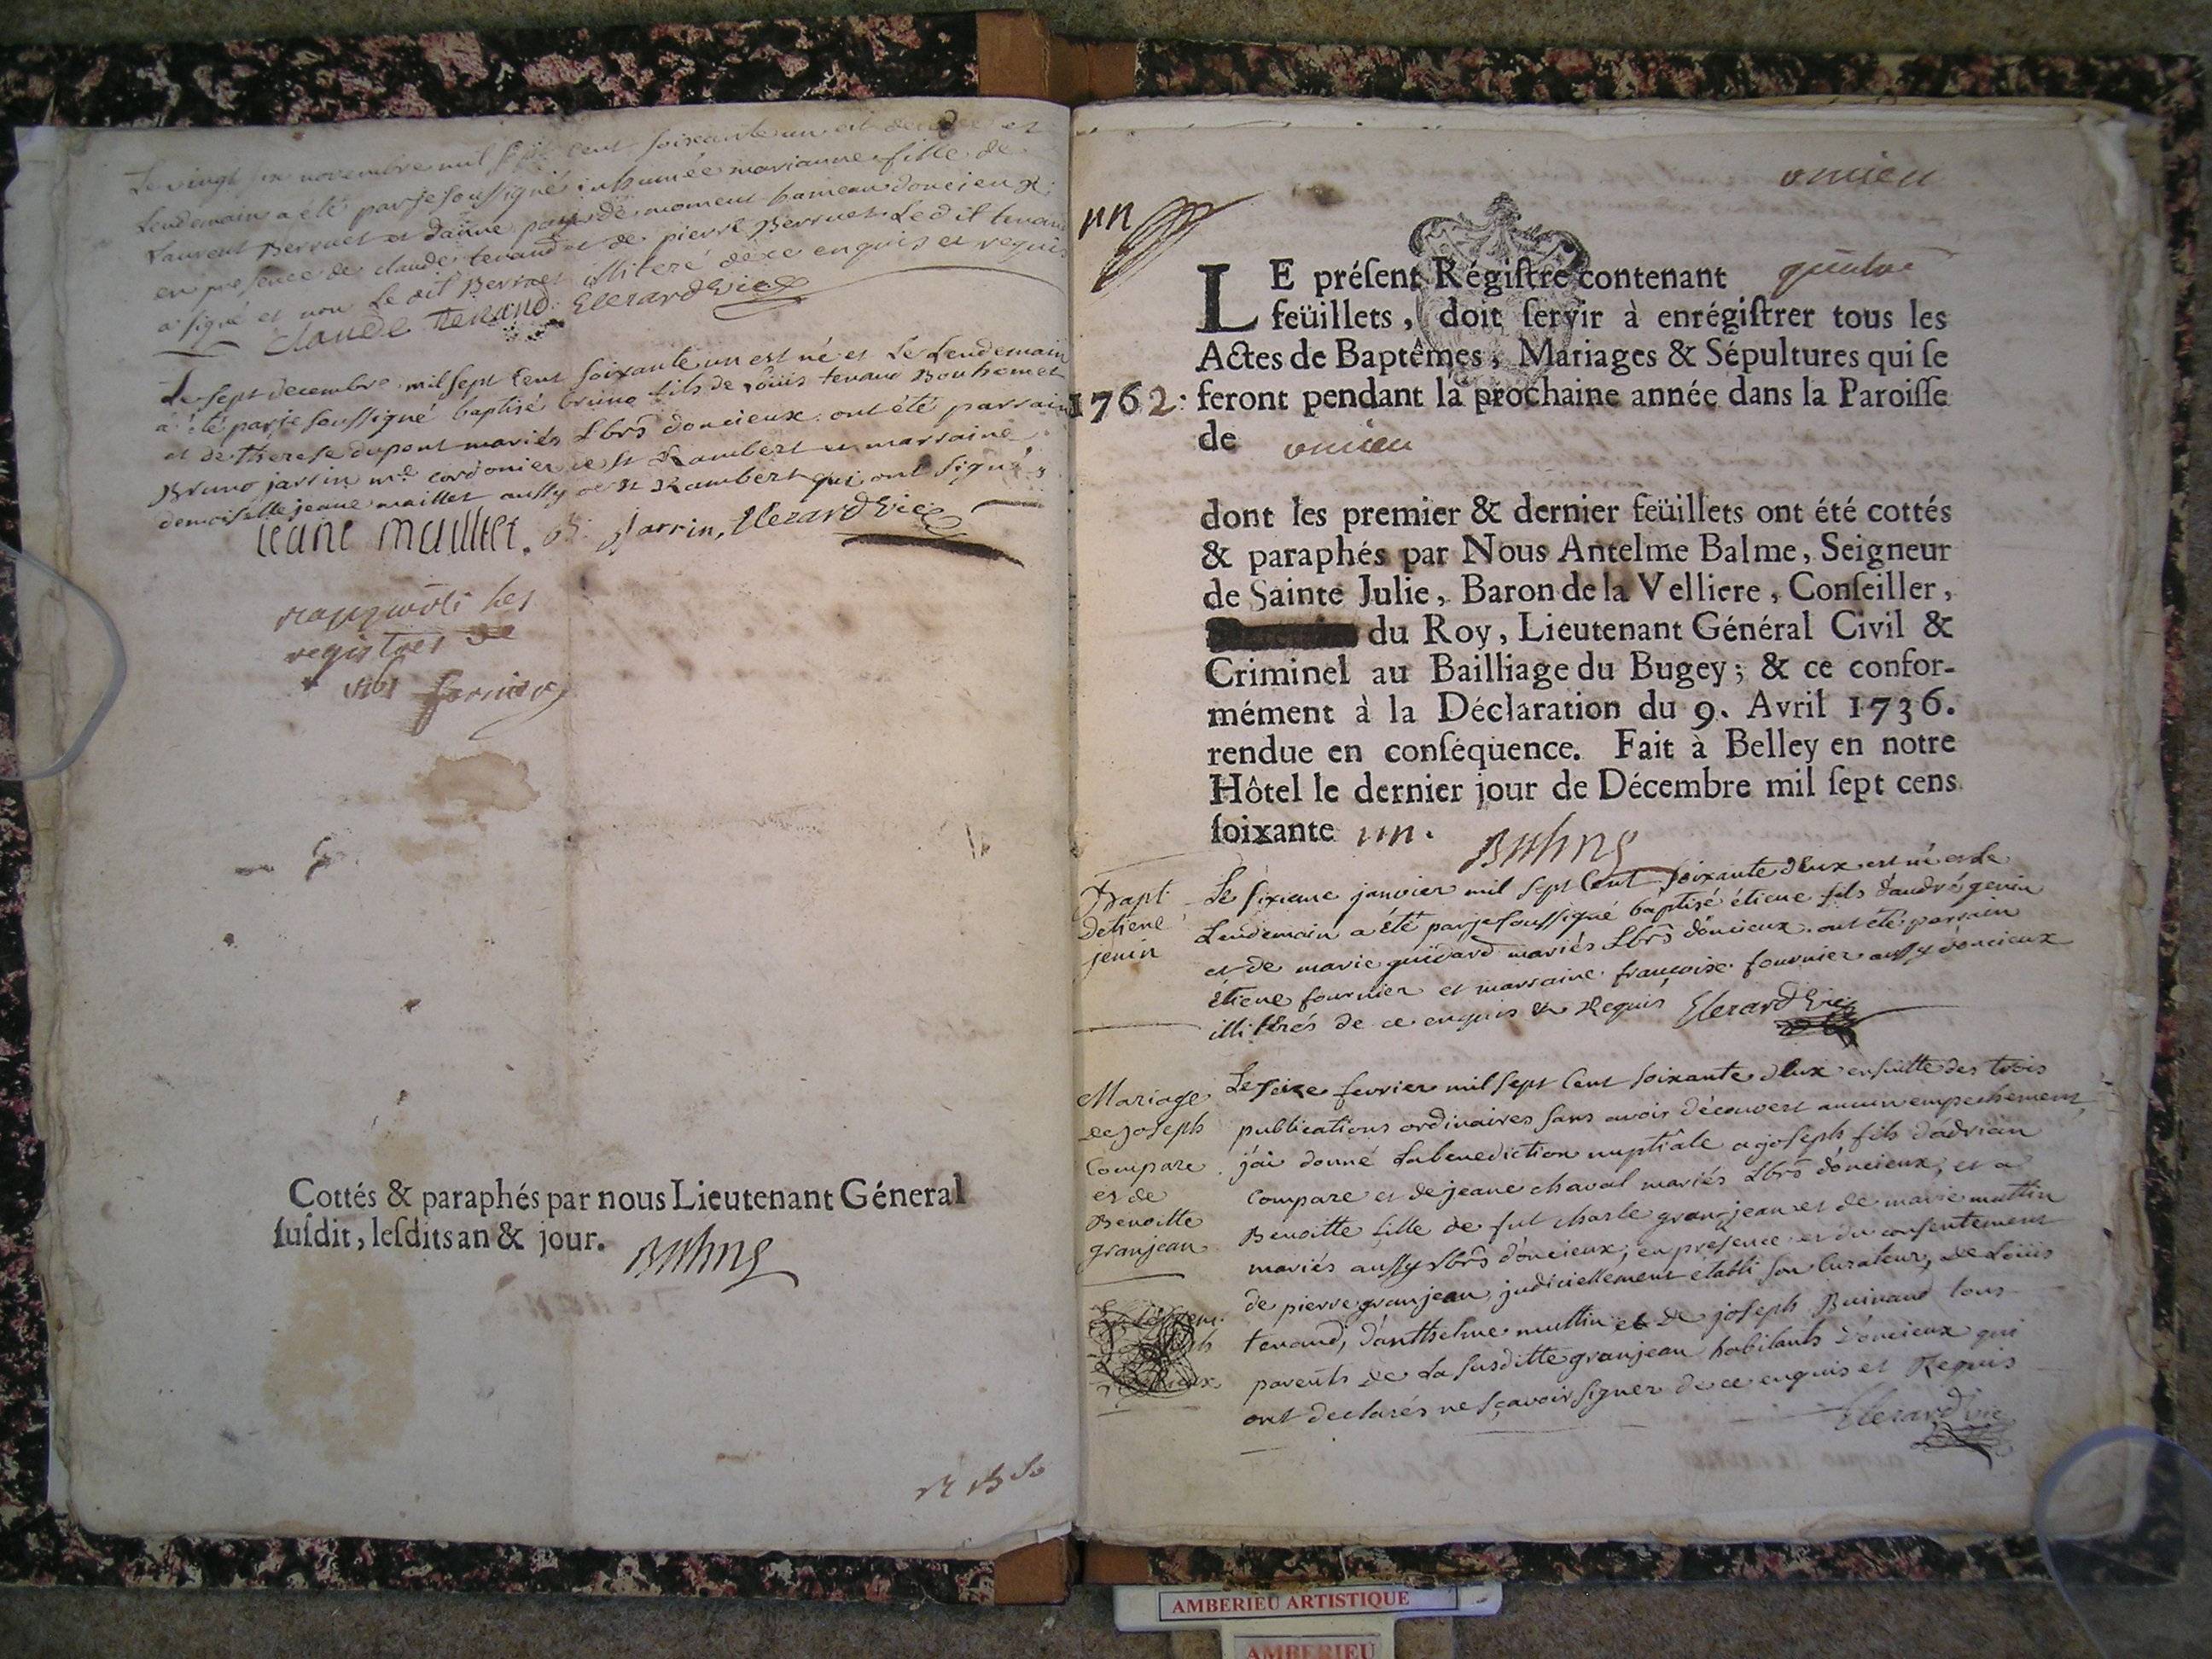 Le vingt six novembre mil sept cent soixante un est decedée et
Lendemain a été par je soussigné inhumée marianne fille de
Laurent Berruet et d'anne de moment hameau doncieux
en presence de claude tenand et de pierre Berruet. Ledit tenand
a signé et non le dit Berruet illiteré de ce enquis et requis
Claude tenand. Elezard Vic
Le sept decembre mil sept cent soixante un est né et Le Lendemain
a été par je soussigné baptisé bruno fils de Loüis tenand Bonhomet
et de therese dupont mariés Lbrs doncieux. ont été parrain
Bruno jarrin md. cordonier de st Rambert et marraine
demoiselle jeane maillet aussy de st Rambert qui ont signé
jeane maillet. B. Jarrin, Elezard Vic
registres de
Cottés & paraphés par nous Lieutenant Géneral
susdit, lesdits an & jour.
oncieu
un
LE présent Régistre contenant quatre
feüillets, doit servir à enrégistrer tous les
Actes de Baptêmes, Mariages & Sépultures qui se
1762. feront pendant la prochaine année dans la Paroisse
de oncieu
dont les premier & dernier feüillets ont été cottés
& paraphés par Nous Antelme Balme, Seigneur
de Sainte Julie, Baron de la Velliere, Conseiller,
du Roy, Lieutenant Général Civil &
Criminel au Bailliage du Bugey; & ce confor-
mément à la Déclaration du 9. Avril 1736.
rendue en conséquence. Fait à Belley en notre
Hôtel le dernier jour de Décembre mil sept cens
soixante un.
Bapt
detiene
jenin
Le sixieme janvier mil sept Cent soixante deux est né et Le
Lendemain a été par je soussigné baptisé étiene fils d'andré genin
et de marie guidard mariés Lbrs doncieux. ont été parrain
étiene fournier et marraine françoise fournier aussy doncieux
illiterés de ce enquis et Requis Elezard Vic
Mariage
de joseph
Compare
et de
Benoitte
granjean
Le seize fevrier mil sept Cent soixante deux ensuitte des trois
publications ordinaires sans avoir découvert aucun empechement,
j'ai donné La benediction nuptiâle a joseph fils d'adrian
Compare et de jeane chaval mariés Lbrs doncieux, et a
Benoitte fille de fut charle granjean et de marie muttin
mariés aussy Lbrs doncieux, en presence et du consentement
de pierre granjean, judiciellement etabli son Curateur, de Loüis
tenand, d'anthelme muttin et de joseph Buinand tous
parents de La susditte granjean habitants doncieux qui
ont declarés ne sçavoir signer de ce enquis et Requis
Elezard Vic
AMBERIEU ARTISTIQUE
AMBERIEU